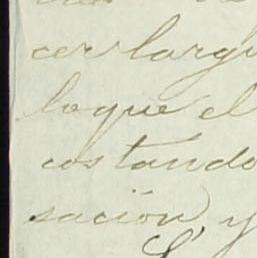 cer largu
lo que el
costando
sación y